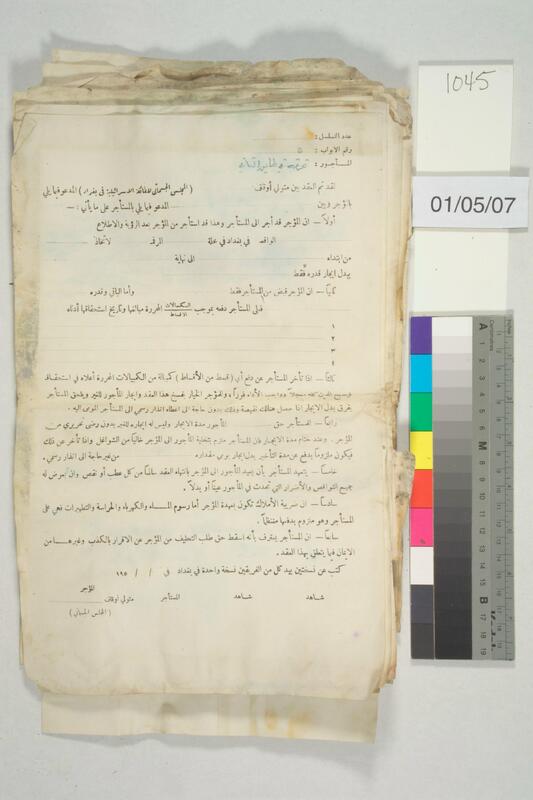 1045
01/05/07
عدد التسلسل :
رقم الابواب : ٥
المـــأجــور :
لقد تم العقد بين متولي أوقف ( المجلس الجسماني للطائفة الاسرائيلية في بغداد ) المدعو فيما يلي
بالمؤجر وبين المدعو فيما يلي بالمستأجر على ما يأتي : —
أولاً — ان المؤجر قد أجر الى المستأجر وهذا قد استأجر من المؤجر بعد الرؤية والاطلاع
الواقع في بغداد في محلة المرقم لاتخاذ
من ابتداء الى نهاية
ببدل ايجار قدره فقط
ثانياً — ان المؤجر قبض من المستأجر فقط وأما الباقي وقدره
فعلى المستأجر دفعه بموجب الكمبيالات / الاقساط المحررة مبالغها وتاريخ استحقاقها أدناه
١
٢
٣
٤
ثالثاً — اذا تأخر المستأجر عن دفع أي ( قسط من الأقساط ) كمبيالة من الكمبيالات المحررة أعلاه في استحقاقه
فيصبح الدين كله معجلاً وواجب الأداء فوراً وللمؤجر الخيار بفسخ هذا العقد وايجار المأجور للغير ويضمن المستأجر
بفرق بدل الايجار اذا حصل هنالك نقيصة وذلك بدون حاجة الى اعطاء انذار رسمي الى المستأجر المومى اليه .
رابعاً — للمستأجر حق المأجور مدة الايجار وليس له ايجاره للغير بدون رضى تحريري من
المؤجر . وعند ختام مدة الايجار فان المستأجر ملزم بتخلية المأجور الى المؤجر خالياً من الشواغل واذا تأخر عن ذلك
فيكون ملزوماً بدفع عن مدة التأخير بدل ايجار يومي مقداره من غير حاجة الى انذار رسمي .
خامساً — يتعهد المستأجر بأن يعيد المأجور الى المؤجر بانتهاء العقد سالماً من كل عطب أو نقص وان يعرض له
جميع النواقص والأضرار التي تحدث في المأجور عيناً أو بدلاً .
سادساً — ان ضريبة الأملاك تكون بعهدة المؤجر أما رسوم المــاء والكهرباء والحراسة والتنظيرات فهي على
المستأجر وهو ملزوم بدفعها منتظماً .
سابعاً — ان المستأجر يعترف بأنه اسقط حق طلب التحليف من المؤجر عن الاقرار بالكذب وغيرهــا من
الايمان فيما يتعلق بهذا العقد .
كتب عن نسختين بيد كل من الفريقين نسخة واحدة في بغداد في / / ١٩٥
شــاهد شــاهد المستأجر المؤجر
متولي اوقف
( المجلس الجسماني )